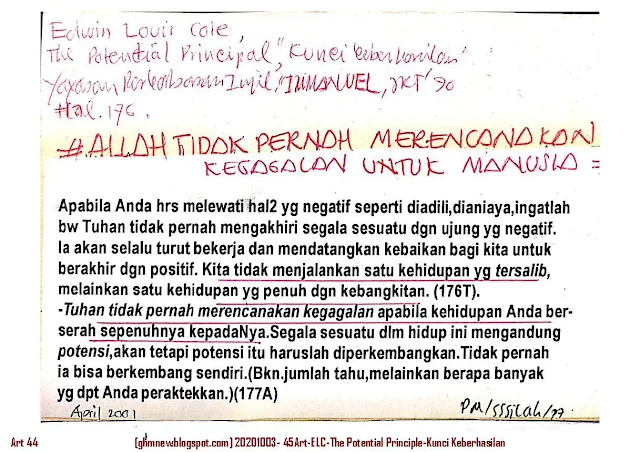 Edwin Louis Cole,
The Potential Principal," Kunci keberhasilan"
Yayasan Perkabaran Injil,"IMMANUEL, JKT' 90
Hal. 176.
#.ALLAH TIDAK PERNAH MERENCANAKAN
KEGAGALAN UNTUK MANUSIA =
Apabila Anda hrs melewati hal2 yg negatif seperti diadili,dianiaya,ingatlah
bw Tuhan tidak pernah mengakhiri segala sesuatu dgn ujung yg negatif.
Ia akan selalu turut bekerja dan mendatangkan kebaikan bagi kita untuk
berakhir dgn positif. Kita tidak menjalankan satu kehidupan yg tersalib,
melainkan satu kehidupan yg penuh dgn kebangkitan. (176T).
-Tuhan tidak pernah merencanakan kegagalan apabila kehidupan Anda ber-
serah sepenuhnya kepadaNya.Segala sesuatu dlm hidup ini mengandung
potensi,akan tetapi potensi itu haruslah diperkembangkan.Tidak pernah
ia bisa berkembang sendiri.(Bkn.jumlah tahu,melainkan berapa banyak
yg dpt Anda peraktekkan.)(177A)
April 2001
Art 44
[ghmnew.blogspot.com] 20201003- 45Art-ELC-The Potential Principle-Kunci Keberhasilan